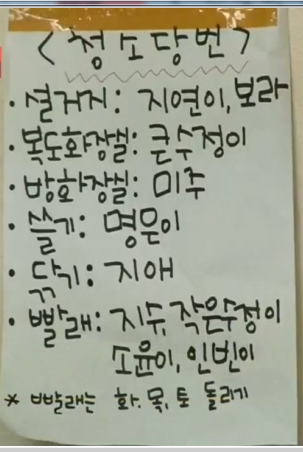 <청소당번>
• 설거지: 지연이, 보라
• 복도화장실: 큰수정이
• 방화장실: 미주
• 쓸기: 명은이
• 닦기: 지애
• 빨래: 지수, 작은수정이
소윤이, 인빈이
* 빨래는 화, 목, 토 돌리기